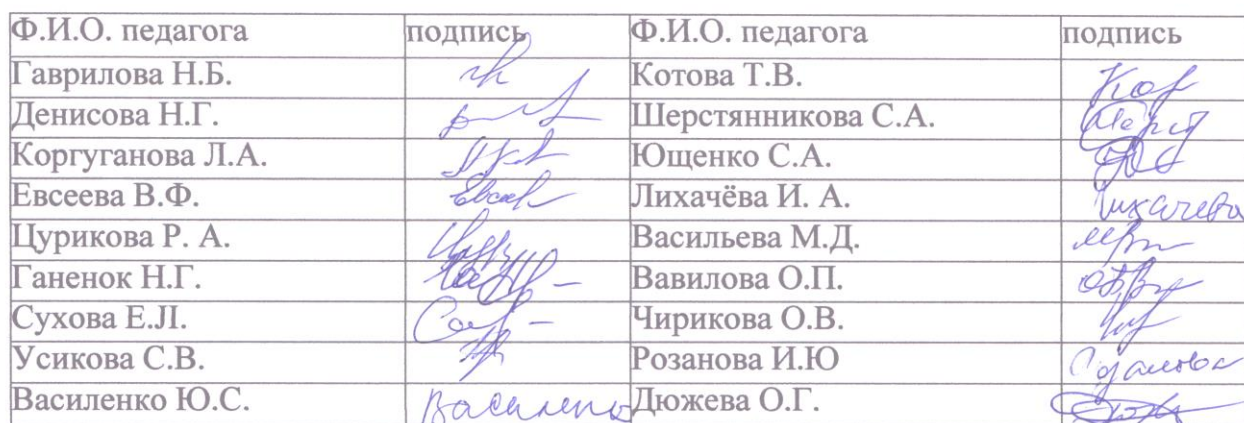 Ф.И.О. педагога подпись Ф.И.О. педагога подпись
Гаврилова Н.Б. Котова Т.В.
Денисова Н.Г. Шерстянникова С.А.
Коргуганова Л.А. Ющенко С.А.
Евсеева В.Ф. Лихачёва И. А. Лихачева
Цурикова Р. А. Васильева М.Д.
Ганенок Н.Г. Вавилова О.П.
Сухова Е.Л. Чирикова О.В.
Усикова С.В. Розанова И.Ю Розанова
Василенко Ю.С. Василенко Дюжева О.Г.